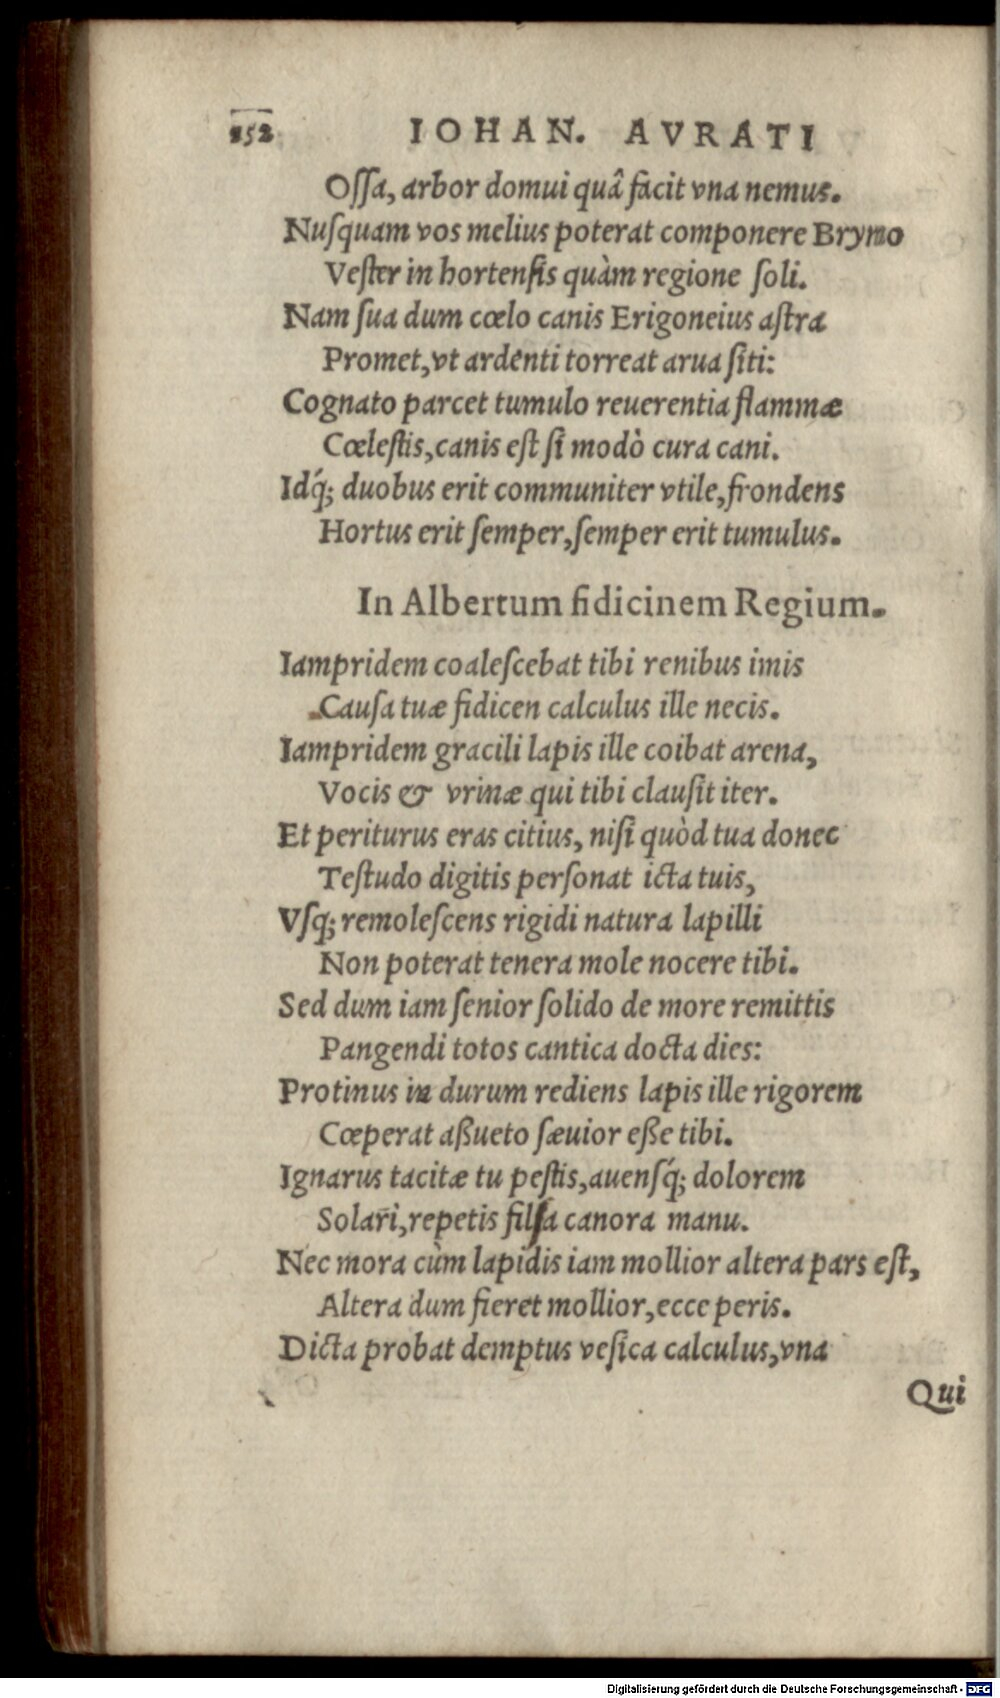 252 IOHAN. AVRATI
Oſſa, arbor domui quâ facit vna nemus.
Nuſquam vos melius poterat componere Brymo
Veſter in hortenſis quàm regione ſoli.
Nam ſua dum cœlo canis Erigoneius aſtra
Promet, vt ardenti torreat arua ſiti:
Cognato parcet tumulo reuerentia flammæ
Cœleſtis, canis eſt ſi modò cura cani.
Idq́; duobus erit communiter vtile, frondens
Hortus erit ſemper, ſemper erit tumulus.
In Albertum fidicinem Regium.
Iampridem coaleſcebat tibi renibus imis
Cauſa tuæ fidicen calculus ille necis.
Iampridem gracili lapis ille coibat arena,
Vocis & vrinæ qui tibi clauſit iter.
Et periturus eras citius, niſi quòd tua donec
Teſtudo digitis perſonat icta tuis,
Vſq; remoleſcens rigidi natura lapilli
Non poterat tenera mole nocere tibi.
Sed dum iam ſenior ſolido de more remittis
Pangendi totos cantica docta dies:
Protinus in durum rediens lapis ille rigorem
Cœperat aßueto ſæuior eße tibi.
Ignarus tacitæ tu peſtis, auenſq́; dolorem
Solari, repetis filſa canora manu.
Nec mora cùm lapidis iam mollior altera pars eſt,
Altera dum fieret mollior, ecce peris.
Dicta probat demptus veſica calculus, vna
Qui
Digitalisierung gefördert durch die Deutsche Forschungsgemeinschaft - DFG